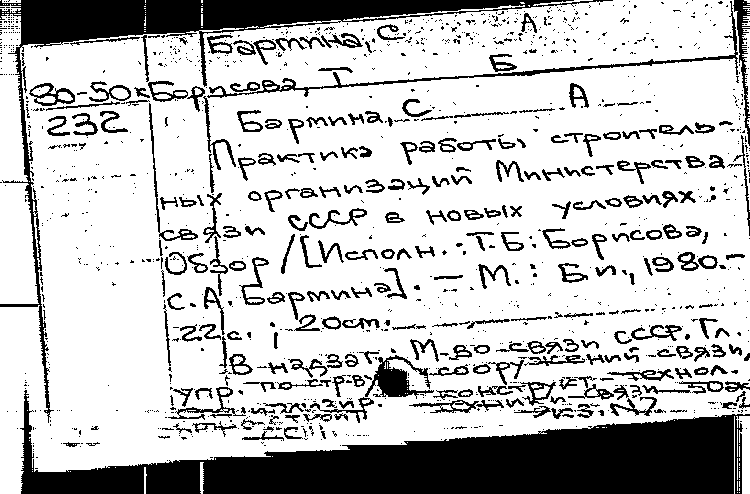 Бармина, С А
80-50к Борисова, Т Б
232 Бармина, С А
Практика работы строитель-
ных организаций Министерства
связи СССР в новых условиях:
Обзор / [Исполн.: Т.Б. Борисова,
С.А. Бармина]. — М.: Б.и., 1980.-
22с.; 20см.
В надзаг.: М-во связи СССР. Гл.
упр. по стр-ву сооружений связи,
конструкт.- технол.
техники связи 50экз
экз. N7